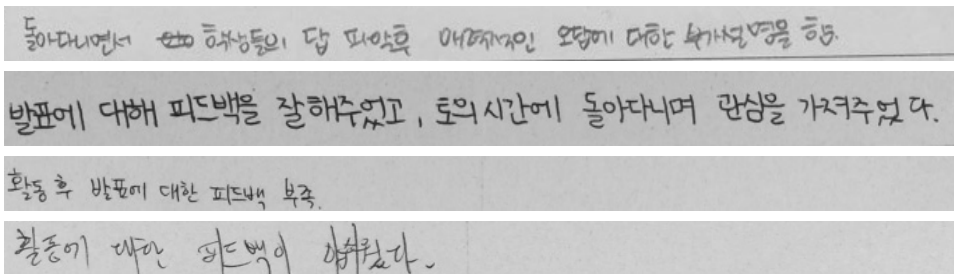 돌아다니면서 학생들의 답 파악후 매력적인 오답에 대한 부가설명을 함.
발표에 대해 피드백을 잘해주었고, 토의시간에 돌아다니며 관심을 가져주었다.
활동 후 발표에 대한 피드백 부족.
활동에 대한 피드백이 아쉬웠다.